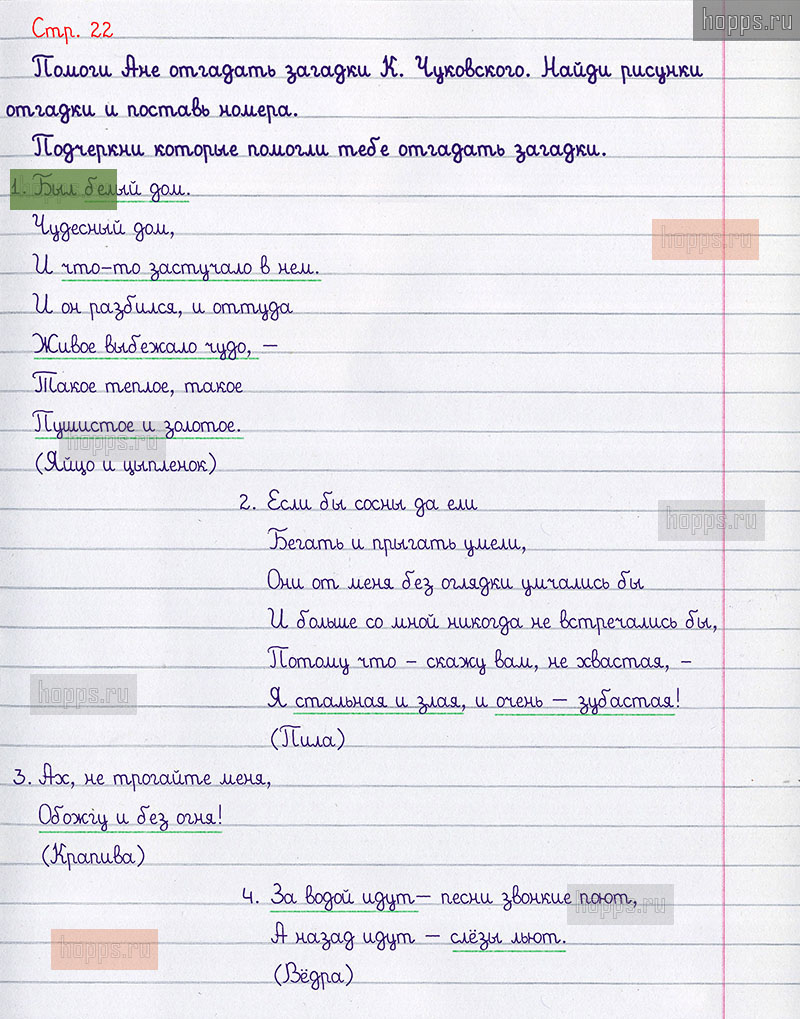 hopps.ru
Стр. 22
Помоги Ане отгадать загадки К. Чуковского. Найди рисунки
отгадки и поставь номера.
Подчеркни которые помогли тебе отгадать загадки.
1. Был белый дом.
Чудесный дом,
hopps.ru
И что-то застучало в нем.
И он разбился, и оттуда
Живое выбежало чудо, —
Такое теплое, такое
Пушистое и золотое.
hopps.ru
(Яйцо и цыпленок)
2. Если бы сосны да ели
hopps.ru
Бегать и прыгать умели,
Они от меня без оглядки умчались бы
И больше со мной никогда не встречались бы,
Потому что – скажу вам, не хвастая, –
hopps.ru
Я стальная и злая, и очень — зубастая!
(Пила)
3. Ах, не трогайте меня,
Обожгу и без огня!
(Крапива)
4. За водой идут— песни звонкие поют,
hopps.ru
А назад идут — слёзы льют.
hopps.ru
(Вёдра)